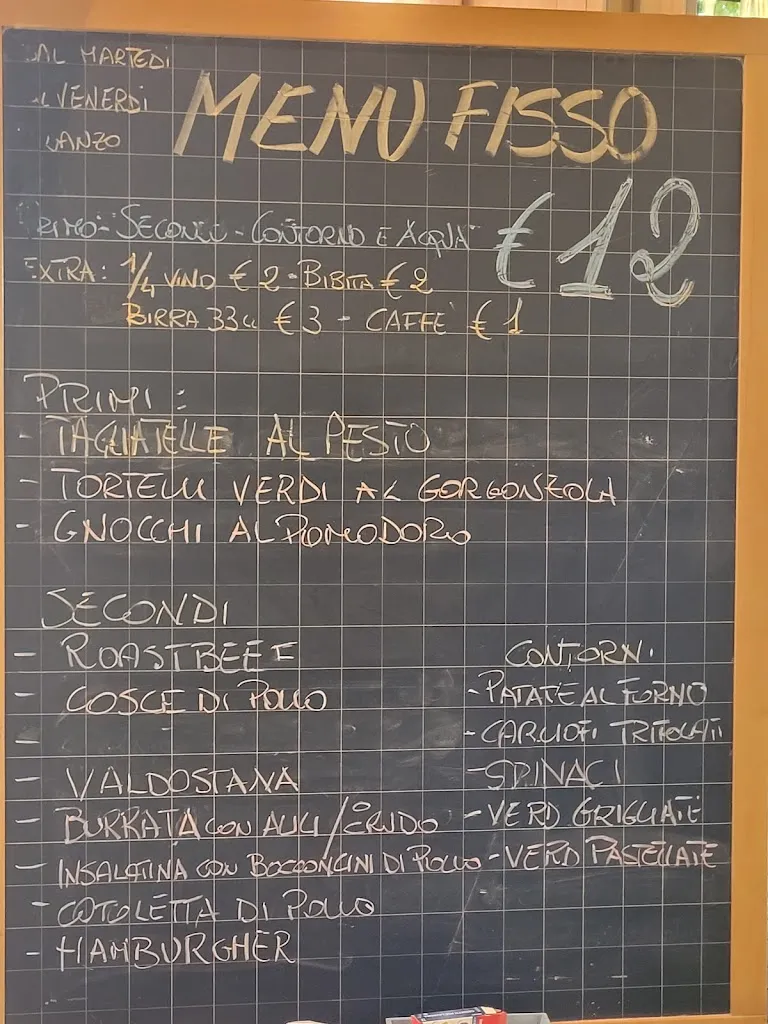 AL MARTEDI
VENERDI
MENU FISSO
€12
PRIMO - SECONDO - CONTORNO E ACQUA
EXTRA: 1/4 VINO € 2 - BIBITA € 2
BIRRA 33CL € 3 - CAFFE' € 1
PRIMI:
- TAGLIATELLE AL PESTO
- TORTELLI VERDI AL GORGONZOLA
- GNOCCHI AL POMODORO
SECONDI
- ROASTBEEF
- COSCE DI POLLO
-
- VALDOSTANA
- BURRATA CON ALICI / CRUDO
- INSALATINA CON BOCCONCINI DI POLLO
- COTOLETTA DI POLLO
- HAMBURGHER
CONTORNI
- PATATE AL FORNO
- CARCIOFI TRIFOLATI
- SPINACI
- VERD GRIGLIATE
- VERD PASTELLATE